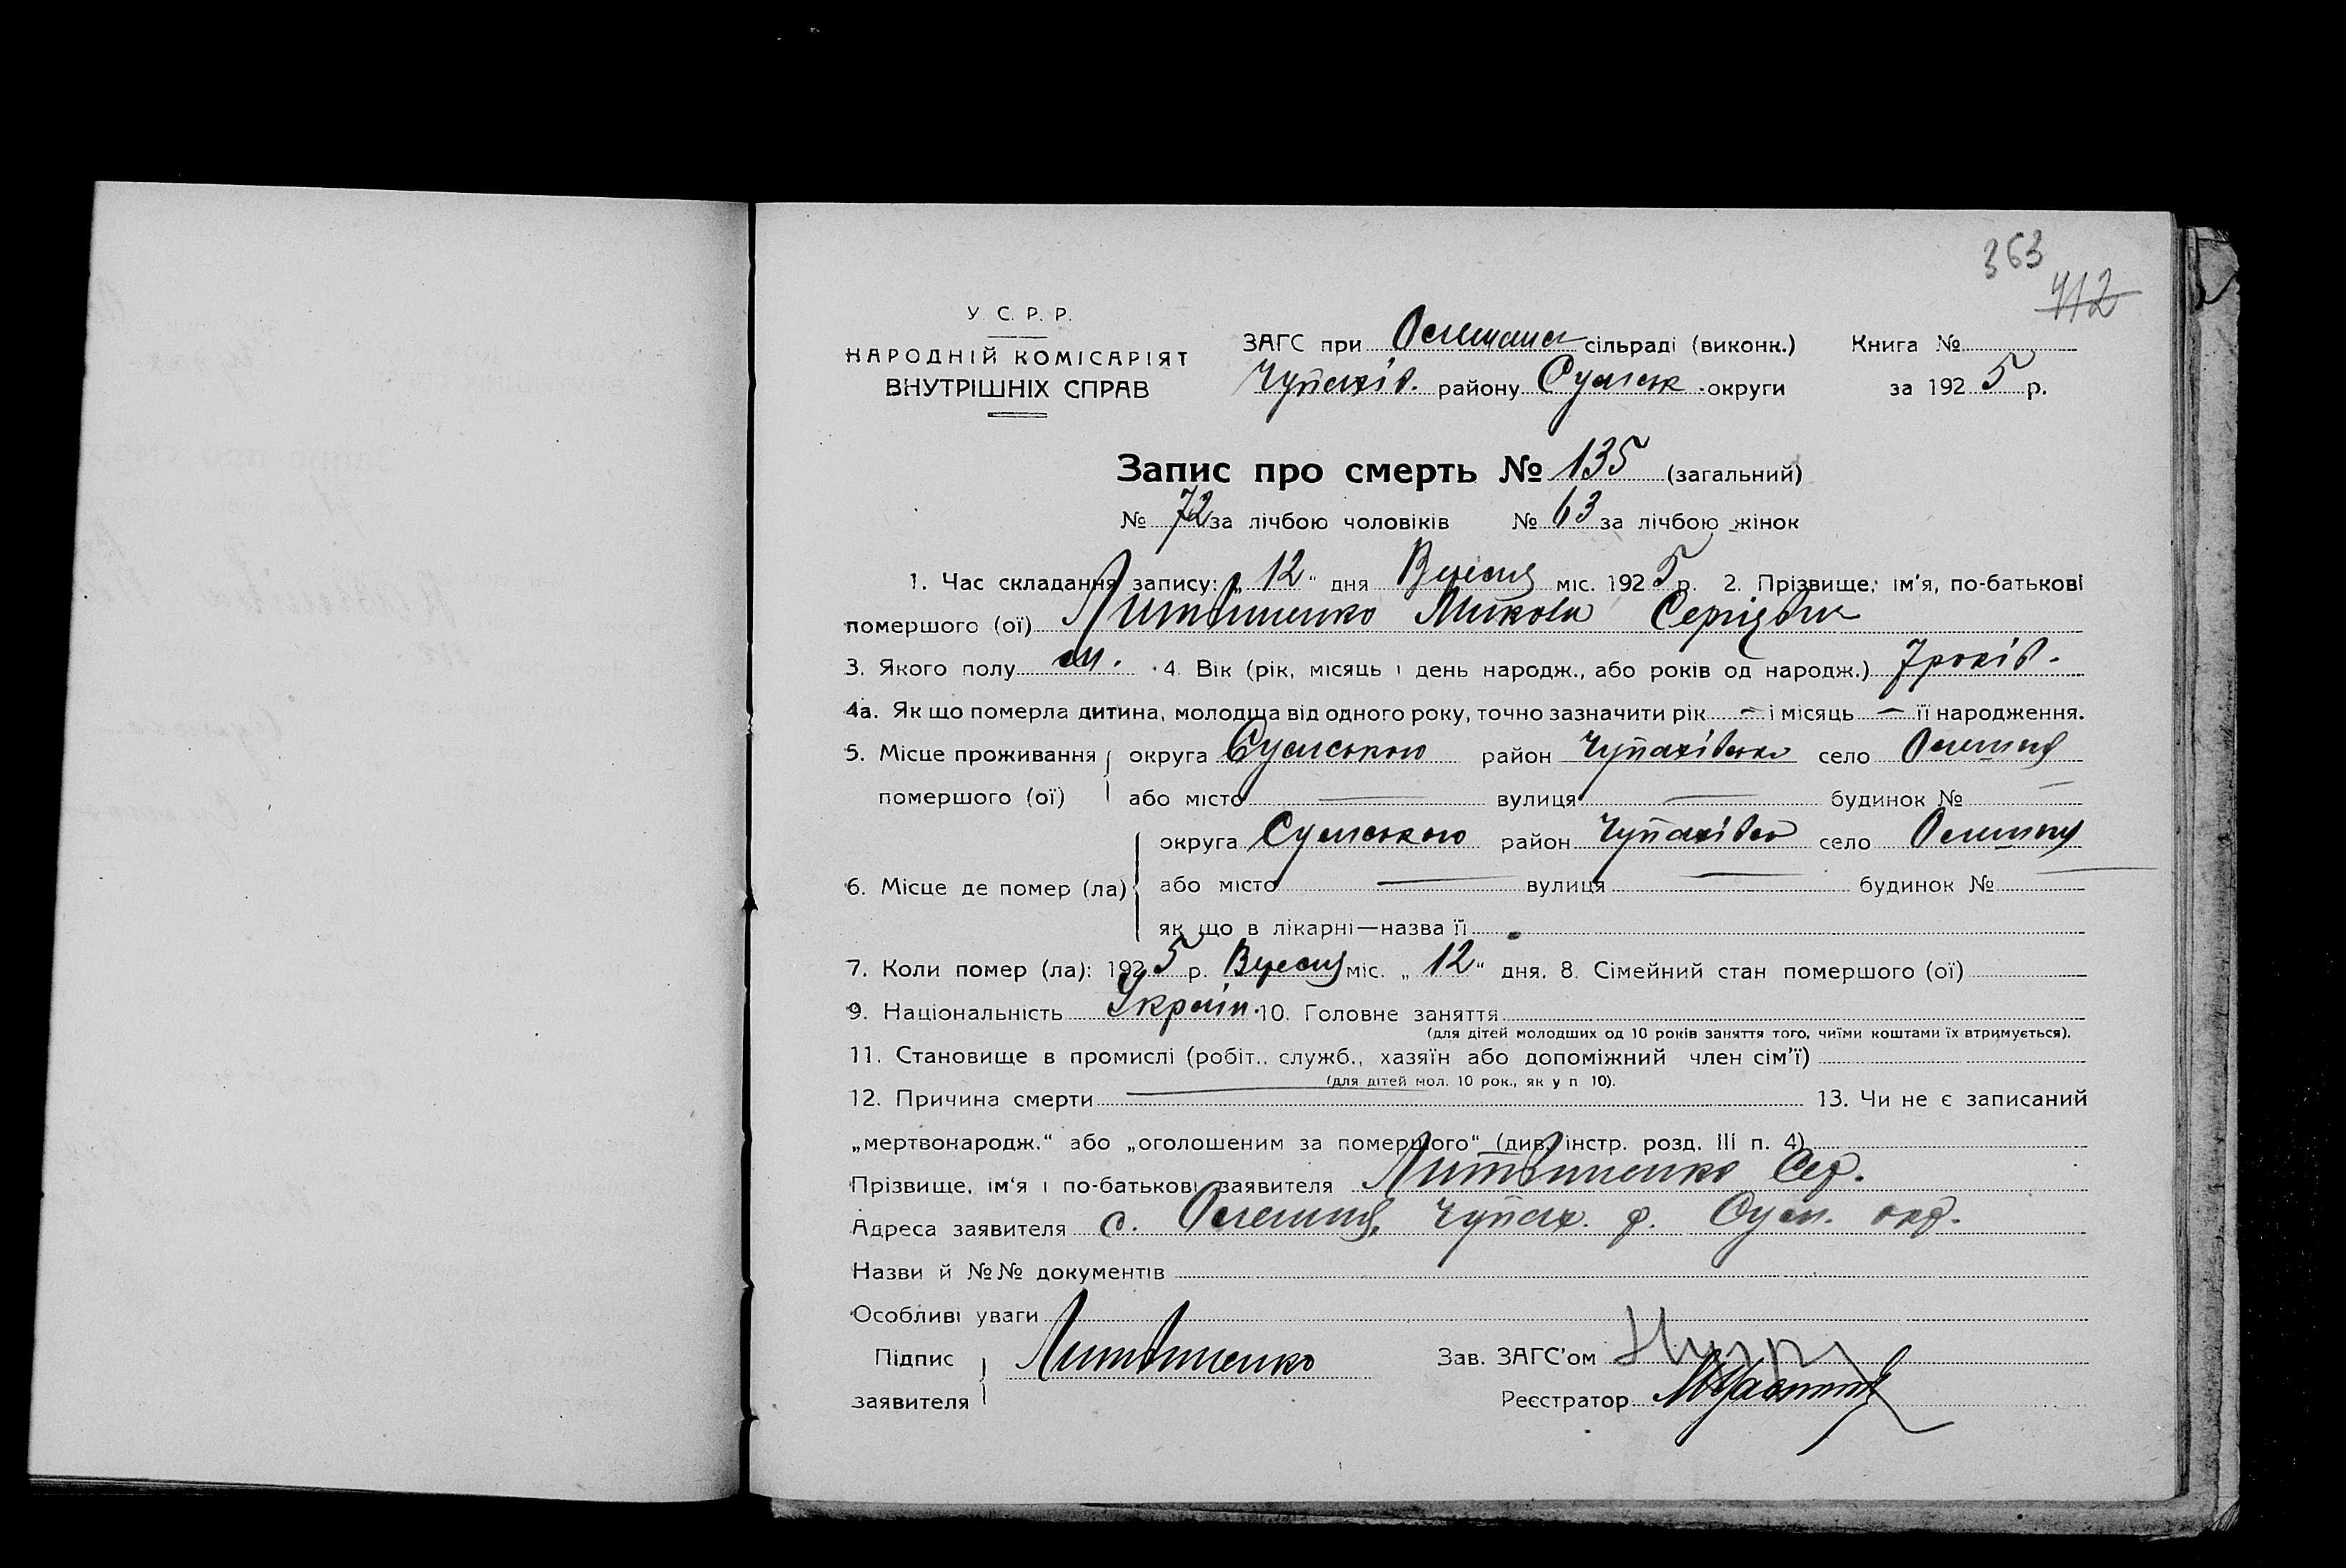 363
412
У. С. Р. Р.
НАРОДНІЙ КОМІСАРІЯТ
ВНУТРІШНІХ СПРАВ
ЗАГС при Олешанс сільраді (виконк.) Книга №
Чупахів. району Сумськ округи за 1925 р.
Запис про смерть № 135 (загальний)
№ 72 за лічбою чоловіків № 63 за лічбою жінок
1. Час складання запису: „ 12 " дня Вересня міс. 1925 р. 2. Прізвище, ім'я, по-батькові
помершого (ої) Литвиненко Микола
3. Якого полу м. 4. Вік (рік, місяць і день народж., або років од народж.) 7 років.
4а. Як що померла дитина, молодща від одного року, точно зазначити рік — і місяць — її народження.
5. Місце проживання округа Сумською район село Олешня
помершого (ої) або місто — вулиця — будинок № —
округа Сумською район село Олешня
6. Місце де помер (ла) або місто — вулиця — будинок № —
як що в лікарні—назва її
7. Коли помер (ла): 1925 р. Вересня міс. „ 12 " дня. 8. Сімейний стан помершого (ої)
9. Національність Україн. 10. Головне заняття
(для дітей молодших од 10 років заняття того, чиїми коштами їх втримується).
11. Становище в промислі (робіт., служб., хазяїн або допоміжний член сім'ї)
(для дітей мол. 10 рок., як у п 10).
12. Причина смерти — 13. Чи не є записаний
„мертвонародж." або „оголошеним за помершого" (див. інстр. розд. III п. 4)
Прізвище, ім'я і по-батькові заявителя Литвиненко Сер.
Адреса заявителя с. Олешня, Чупах. р. Сум. окр.
Назви й №№ документів
Особливі уваги
Підпис Литвиненко Зав. ЗАГС'ом
заявителя Реєстратор